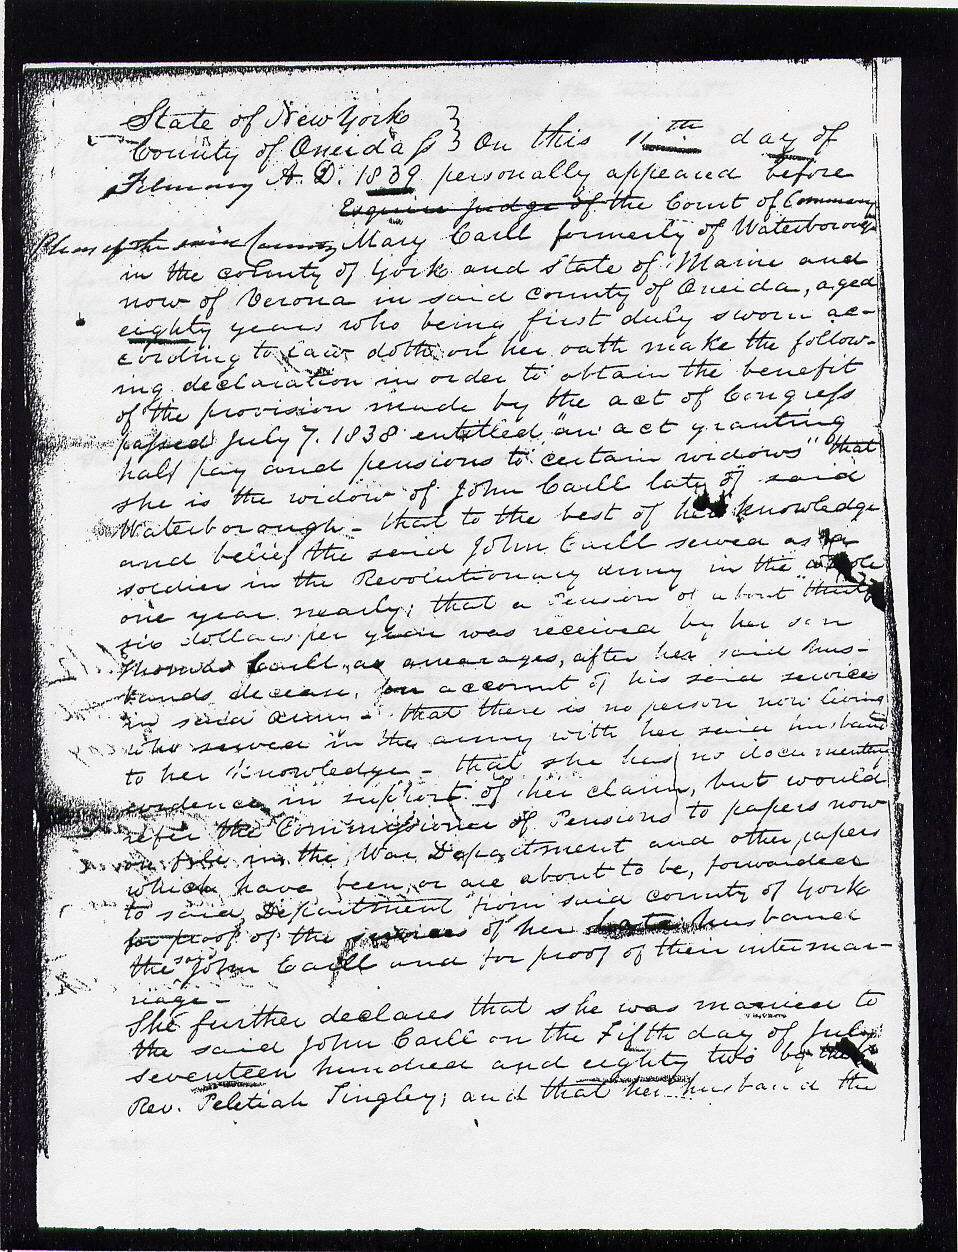 State of New York
County of Oneida ss } On this 11th day of
February A.D. 1839 personally appeared before
Esquire Judge of the Court of Common
Pleas of the said County Mary Carll formerly of Waterborough
in the county of York and State of Maine and
now of Verona in said county of Oneida, aged
eighty years who being first duly sworn ac-
cording to law doth on her oath make the follow-
ing declaration in order to obtain the benefit
of the provision made by the act of Congress
passed July 7. 1838 entitled "an act granting
half pay and pensions to certain widows" that
she is the widow of John Carll late of said
Waterborough - that to the best of her knowledge
and belief the said John Carll served as a
soldier in the Revolutionary army in the whole
one year nearly; that a Pension of about thirty
six dollars per year was received by her son
Thomas Carll, as arrearages, after her said hus-
bands decease, on account of his said services
in said army - that there is no person now living
who served in the army with her said husband
to her knowledge - that she has no documentary
evidence in support of her claim, but would
refer the Commissioner of Pensions to papers now
on file in the War Department and other papers
which have been, or are about to be, forwarded
to said Department from said county of York
for proof of the services of her late husband
the said John Carll and for proof of their intermar-
riage -
She further declares that she was married to
the said John Carll on the Fifth day of July
seventeen hundred and eighty two by the
Rev. Peletiah Tingley; and that her husband the